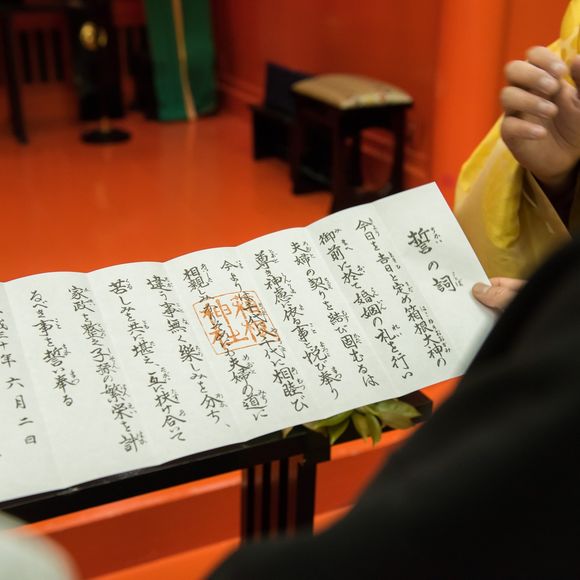 誓の詞
今日を吉日と定め箱根大神の
御前に於て婚姻の礼を行い
夫婦の契りを結び固むるは
尊き神慮に依る事と悦び奉り
今より 代に相睦び
相親しみ 夫婦の道に
違う事無く楽しみを分ち、
苦しみを共に堪え互に扶け合いて
家政を整え子孫の繁栄を計
るべき事を誓い奉る
十年 六月二日
箱根
神社